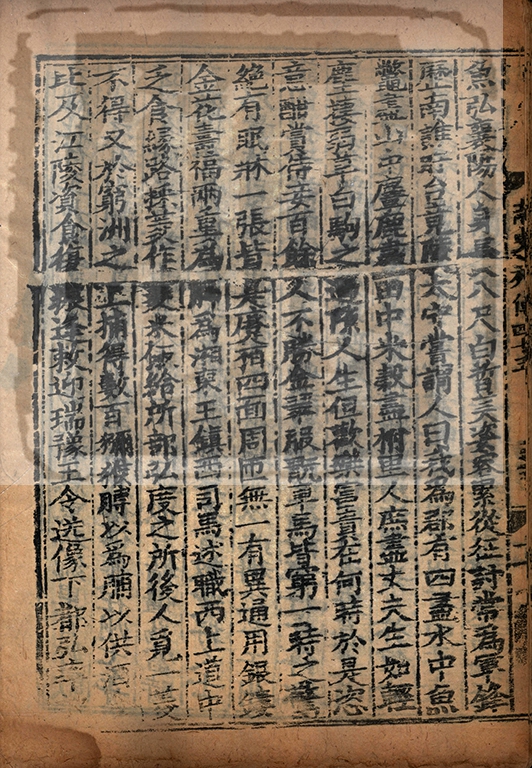 魚弘襄陽人身長八尺白晳美姿容累從征討常為軍鋒
歷南譙盱台竟陵太守嘗謂人曰我為郡有四盡水中魚
鼈盡山中麞鹿盡田中米穀盡村里人庶盡丈夫生如輕
塵棲弱草白駒之過隙人生但歡樂富貴在何時於是恣
意酣賞侍妾百餘人不勝金翠服翫車馬皆窮一時之驚
絶有眠牀一張皆是蹙栢四面周帀無一有異通用銀鏤
金花壽福兩重為脚為湘東王鎮西司馬述職西上道中
乏食緣路採菱作菱米飯給所部弘度之所後人覓一菱
不得又於窮洲之上捕得數百獼猴膊以為脯以供酒
比及江陵資食復振逢敕迎瑞像王令送像下都弘率